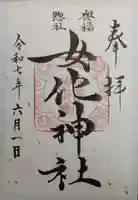 奉拝
惣社
女化神社
令和七年六月一日